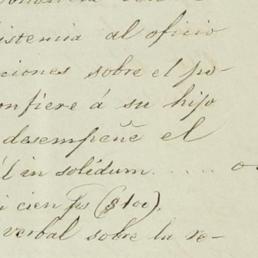 istencia al oficio
ciones sobre el po-
onfiere á su hijo
desempeñe el
in solidum.....
cien ps ($100).
verbal sobre la re-